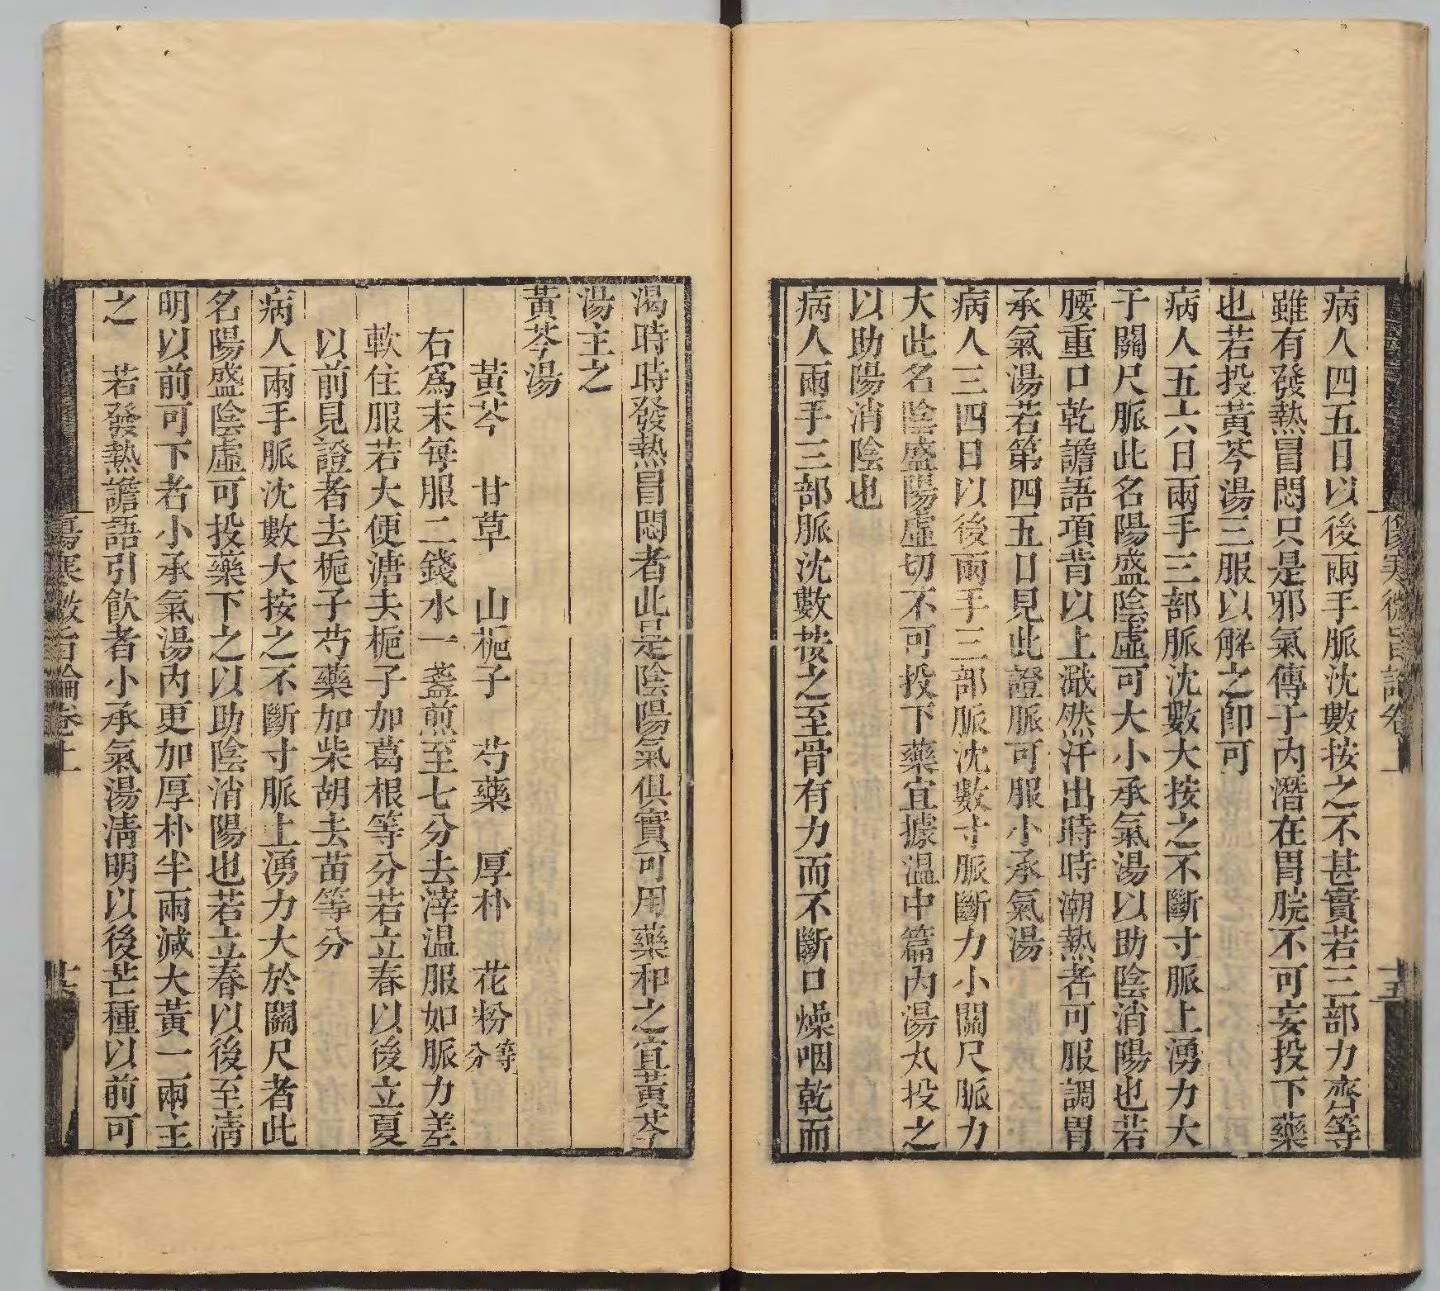 傷寒微旨論卷上
十五
病人四五日以後兩手脈沈數按之不甚實若三部力齊等
雖有發熱冒悶只是邪氣傳于內潛在胃脘不可妄投下藥
也若投黃芩湯三服以解之即可
病人五六日兩手三部脈沈數大按之不斷寸脈上湧力大
于關尺脈此名陽盛陰虛可大小承氣湯以助陰消陽也若
腰重口乾譫語項背以上濈然汗出時時潮熱者可服調胃
承氣湯若第四五日見此證脈可服小承氣湯
病人三四日以後兩手三部脈沈數寸脈斷力小關尺脈力
大此名陰盛陽虛切不可投下藥宜據溫中篇內湯太投之
以助陽消陰也
病人兩手三部脈沈數按之至骨有力而不斷口燥咽乾而
渴時時發熱冒悶者此是陰陽氣俱實可用藥和之宜黃芩
湯主之
黃芩湯
黃芩 甘草 山梔子 芍藥 厚朴 花粉等分
右為末每服二錢水一盞煎至七分去滓溫服如脈力差
軟住服若大便溏去梔子加葛根等分若立春以後立夏
以前見證者去梔子芍藥加柴胡去苗等分
病人兩手脈沈數大按之不斷寸脈上湧力大於關尺者此
名陽盛陰虛可投藥下之以助陰消陽也若立春以後至淸
明以前可下者小承氣湯內更加厚朴半兩減大黃一兩主
之 若發熱譫語引飲者小承氣湯淸明以後芒種以前可
傷寒微旨論卷上